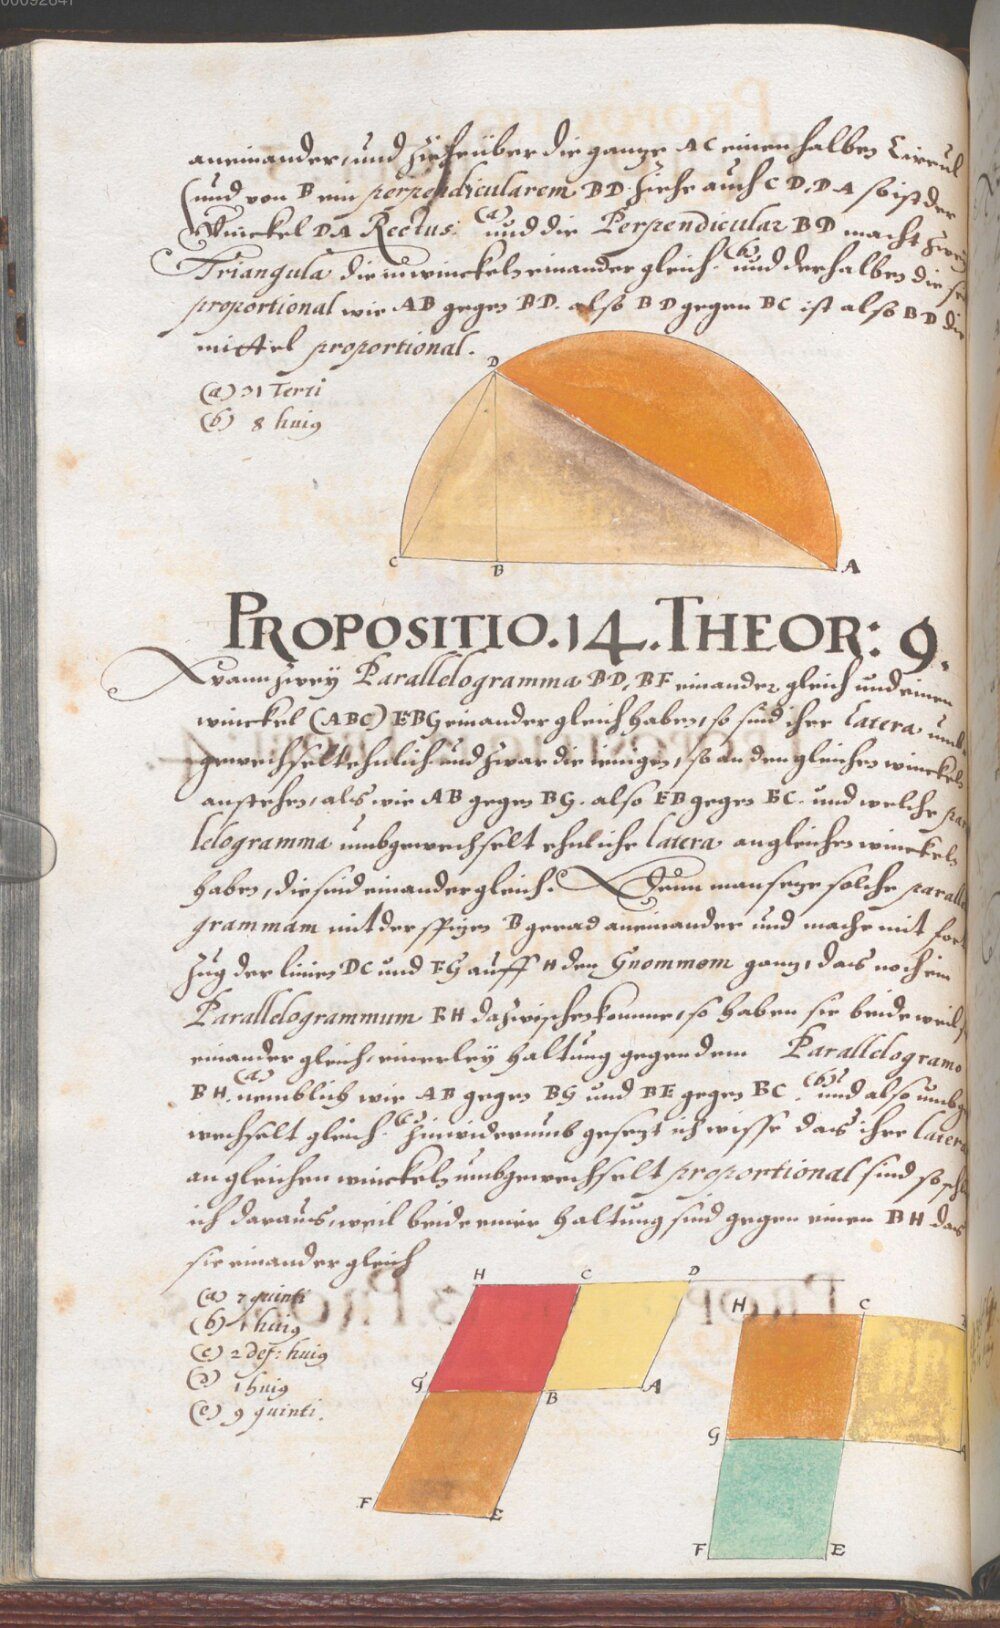 00092641
aneinander, und Ziehe über die gantze AC einen halben Circul
(und von B ein perpendicularem BD. Ziehe auch CD, DA so ist der
Winckel DA Rectus. (a) und die Perpendicular BD macht zwey
Triangula die in winckeln einander gleich. (b) und derhalben die sei
proportional wie AB gegen BD. also BD gegen BC ist also BD die
mittel proportional.
(a) 31 Terti
(b) 8 huig
D
C B A
PROPOSITIO. 14. THEOR: 9.
Wann zwey Parallelogramma BD, BF einander gleich und einen
winckel (ABC) EBG einander gleich haben, so sind ihre Latera umb
gewechselt ehnlich und zwar die ienigen, so an den gleichen winckeln
anstehen, als wie AB gegen BG. also EB gegen BC. und welche par
lelogramma umbgewechselt ehnliche latera an gleichen winckeln
haben, die sind einander gleich. Denn man setze solche paralle
grammam mit der spitzen B gerad aneinander und mache mit fort
zug der linien DC und FG auff H den Gnommom gantz, das noch ein
Parallelogrammum BH dazwischen komme, so haben sie beide weil s
einander gleich, einerley haltung gegen dem Parallelogramo
BH. (a) nemblich wie AB gegen BG und BE gegen BC. (b) und also umbge
wechselt gleich. (c) Hinwiderumb gesetzt ich wisse das ihre latera
an gleichen winckeln umbgewechselt proportional sind so schl
ich daraus, weil beide einer haltung sind gegen einen BH das
sie einander gleich
(a) 7 quinti
(b) 1 huig
(c) 2 def: huig
(d) 1 huig
(e) 9 quinti.
H C D
G B A
F E
H C
G
F E